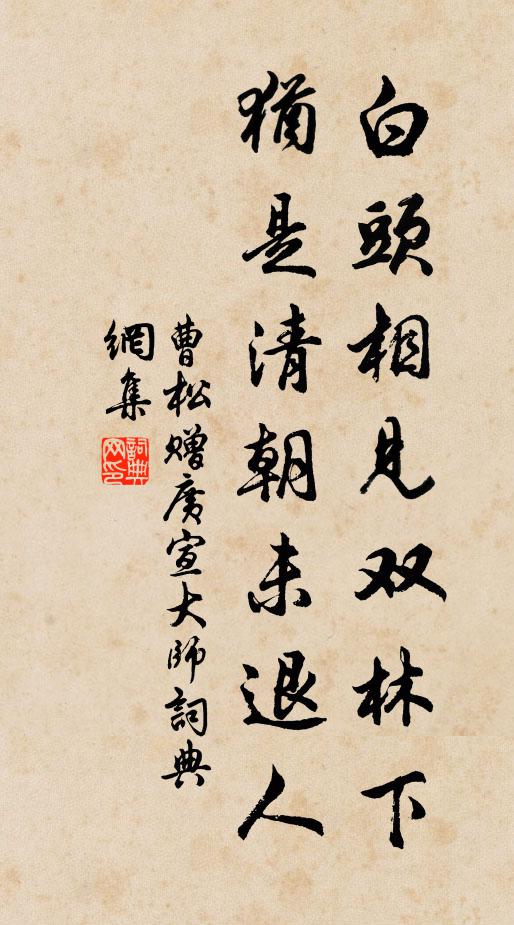 白頭相見双林下
猶是清朝未退人
曹松赠廣宣大師詞典
網集
詞典
网印